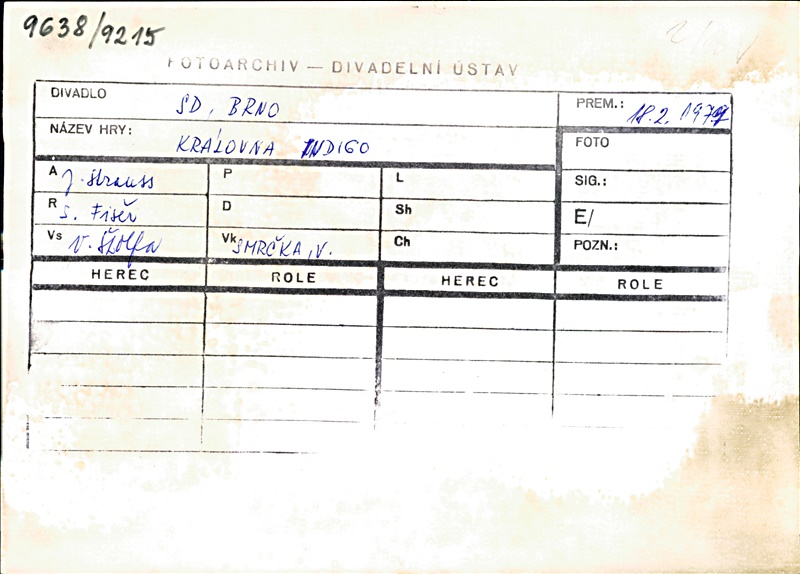 9638/9215
FOTOARCHIV — DIVADELNÍ ÚSTAV
DIVADLO SD, BRNO
PREM.: 18.2.
NÁZEV HRY: KRÁLOVNA INDIGO
FOTO
A J. Strauss P L
SIG.:
R S. Fišer D Sh
E/
Vs V. Štolfa Vk SMRČKA, V. Ch
POZN.:
HEREC ROLE HEREC ROLE